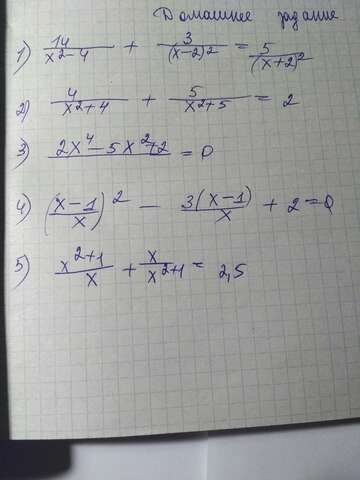 Домашнее задание
1) 14/(x²-4) + 3/(x-2)² = 5/(x+2)²
2) 4/(x²+4) + 5/(x²+5) = 2
3) 2x⁴-5x²+2 = 0
4) ((x-1)/x)² - 3(x-1)/x + 2 = 0
5) (x²+1)/x + x/(x²+1) = 2,5